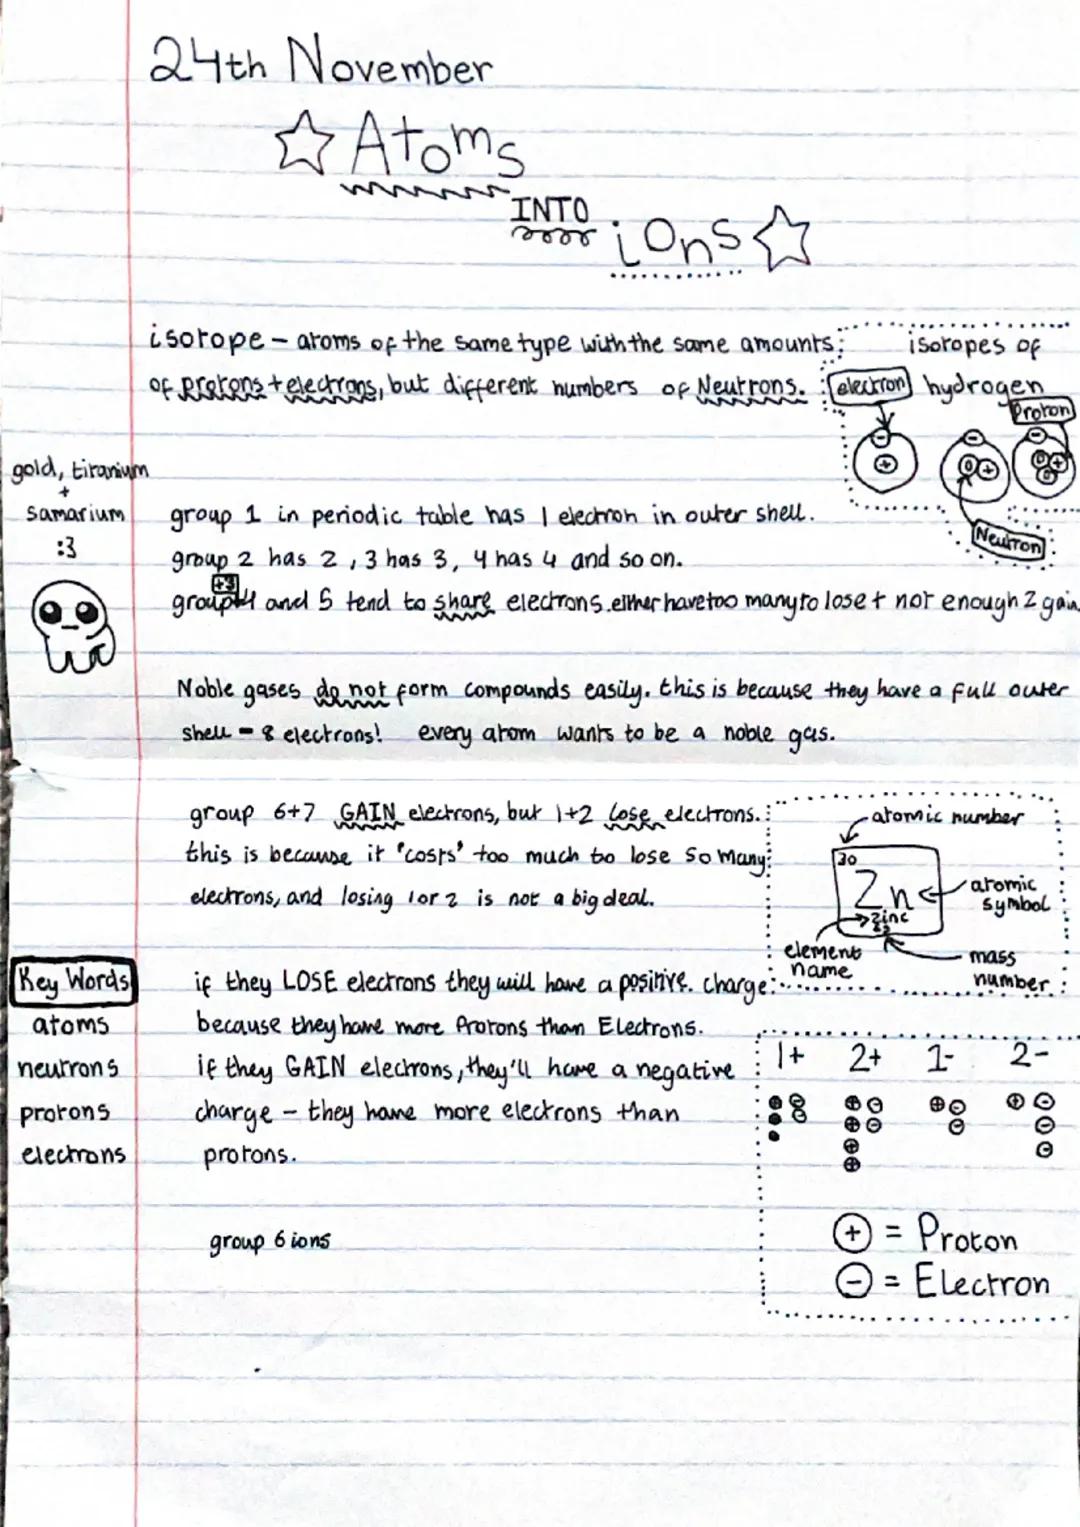 24th November
☆ Atoms
INTO
ions ☆
isotope - atoms of the same type with the same amounts
of protons + electrons, but different numbers of Neutrons.
isotopes of
hydrogen
electron
Proton
Neutron
gold, titanium
+
samarium
:3
group 1 in periodic table has 1 electron in outer shell.
group 2 has 2, 3 has 3, 4 has 4 and so on.
+3
group 4 and 5 tend to share electrons. either have too many to lose + not enough 2 gain.
Noble gases do not form compounds easily. this is because they have a full outer
shell - 8 electrons! every atom wants to be a noble gas.
group 6+7 GAIN electrons, but 1+2 lose electrons.
this is because it 'costs' too much to lose so many
electrons, and losing 1 or 2 is not a big deal.
atomic number
30
Zn
zinc
atomic
symbol
element
name
mass
number
Key Words
atoms
neutrons
protons
electrons
if they LOSE electrons they will have a positive charge
because they have more Protons than Electrons.
if they GAIN electrons, they'll have a negative
charge - they have more electrons than
protons.
1+ 2+ 1- 2-
+ = Proton
- = Electron
group 6 ions